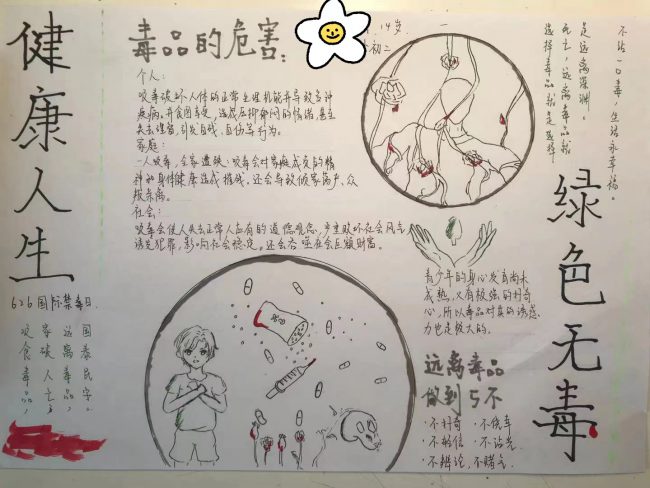 健康人生
626国际禁毒日
国泰民安。
远离毒品，
家破人亡；
吸食毒品，
毒品的危害：
14岁
初二
个人：
吸毒破坏人体的正常生理机能并导致多种
疾病，
失去理智，引发自残、自伤等行为。
家庭：
一人吸毒，全家遭殃。吸毒会对家庭成员的精
神和身体健康造成损残，还会导致倾家荡产、众
叛亲离。
社会：
吸毒会使人失去正常人应有的道德观念，严重败坏社会风气
诱发犯罪，影响社会稳定。还会吞噬社会巨额财富。
不沾一口毒，生活永幸福。
是远离深渊。
死亡，远离毒品就
选择毒品就是选择
绿色无毒
青少年的身心发育尚未
成熟，又有极强的好奇
心，所以毒品对其的诱惑
力也是极大的。
远离毒品
做到5不
·不好奇 ·不侥幸
·不轻信 ·不沾光
·不辩论，不赌气